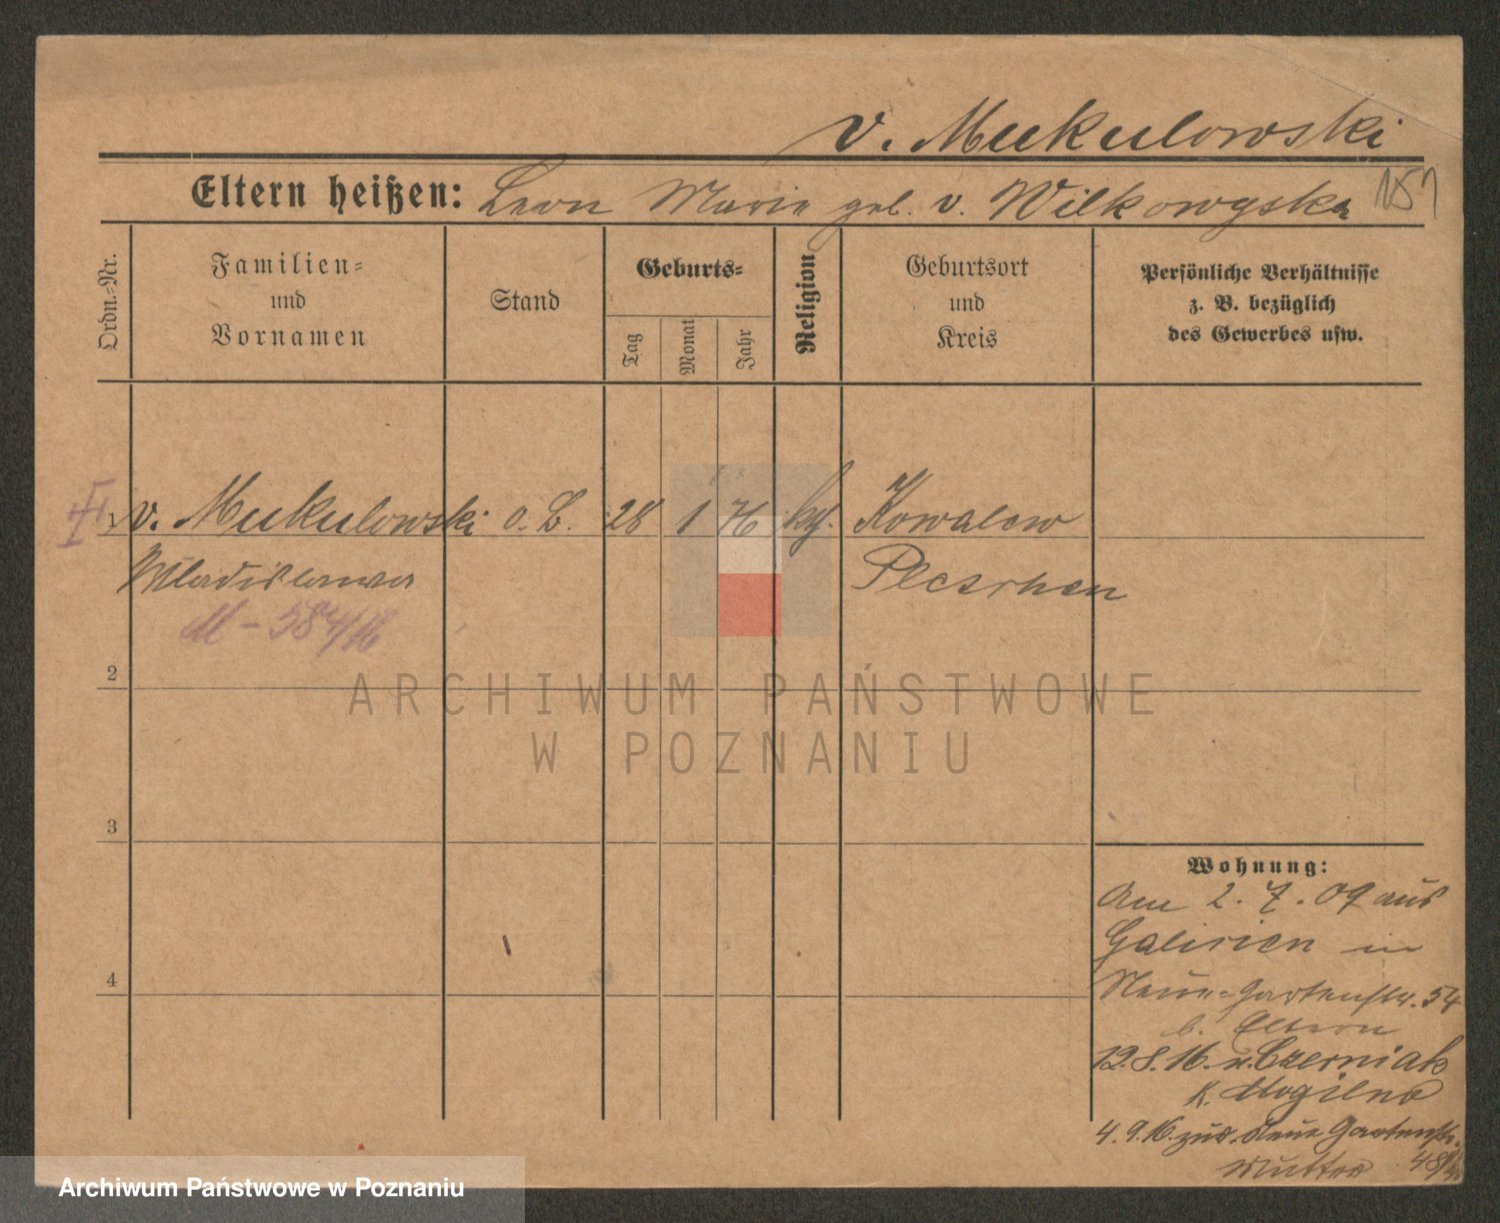 v. Mukulowski
Eltern heißen: Leon Marie geb. v. Wilkowyska
Ordn.-Nr.
Familien-
und
Vornamen
Stand
Geburts-
Tag
Monat
Jahr
Religion
Geburtsort
und
Kreis
Persönliche Verhältnisse
z. B. bezüglich
des Gewerbes usw.
1 v. Mukulowski o. B. 28 1 76 kath. Kowalew
Wladislawa Pleschen
M-584/16
2
ARCHIWUM PAŃSTWOWE
W POZNANIU
3
4
Wohnung:
Am 2.7.09 aus
Galizien in
Neue-Gartenstr. 54
b. Eltern
12.8.16. n. Czerniak
K. Mogilno
4.9.16. zur. Neue Gartenstr.
Mutter 48
Archiwum Państwowe w Poznaniu